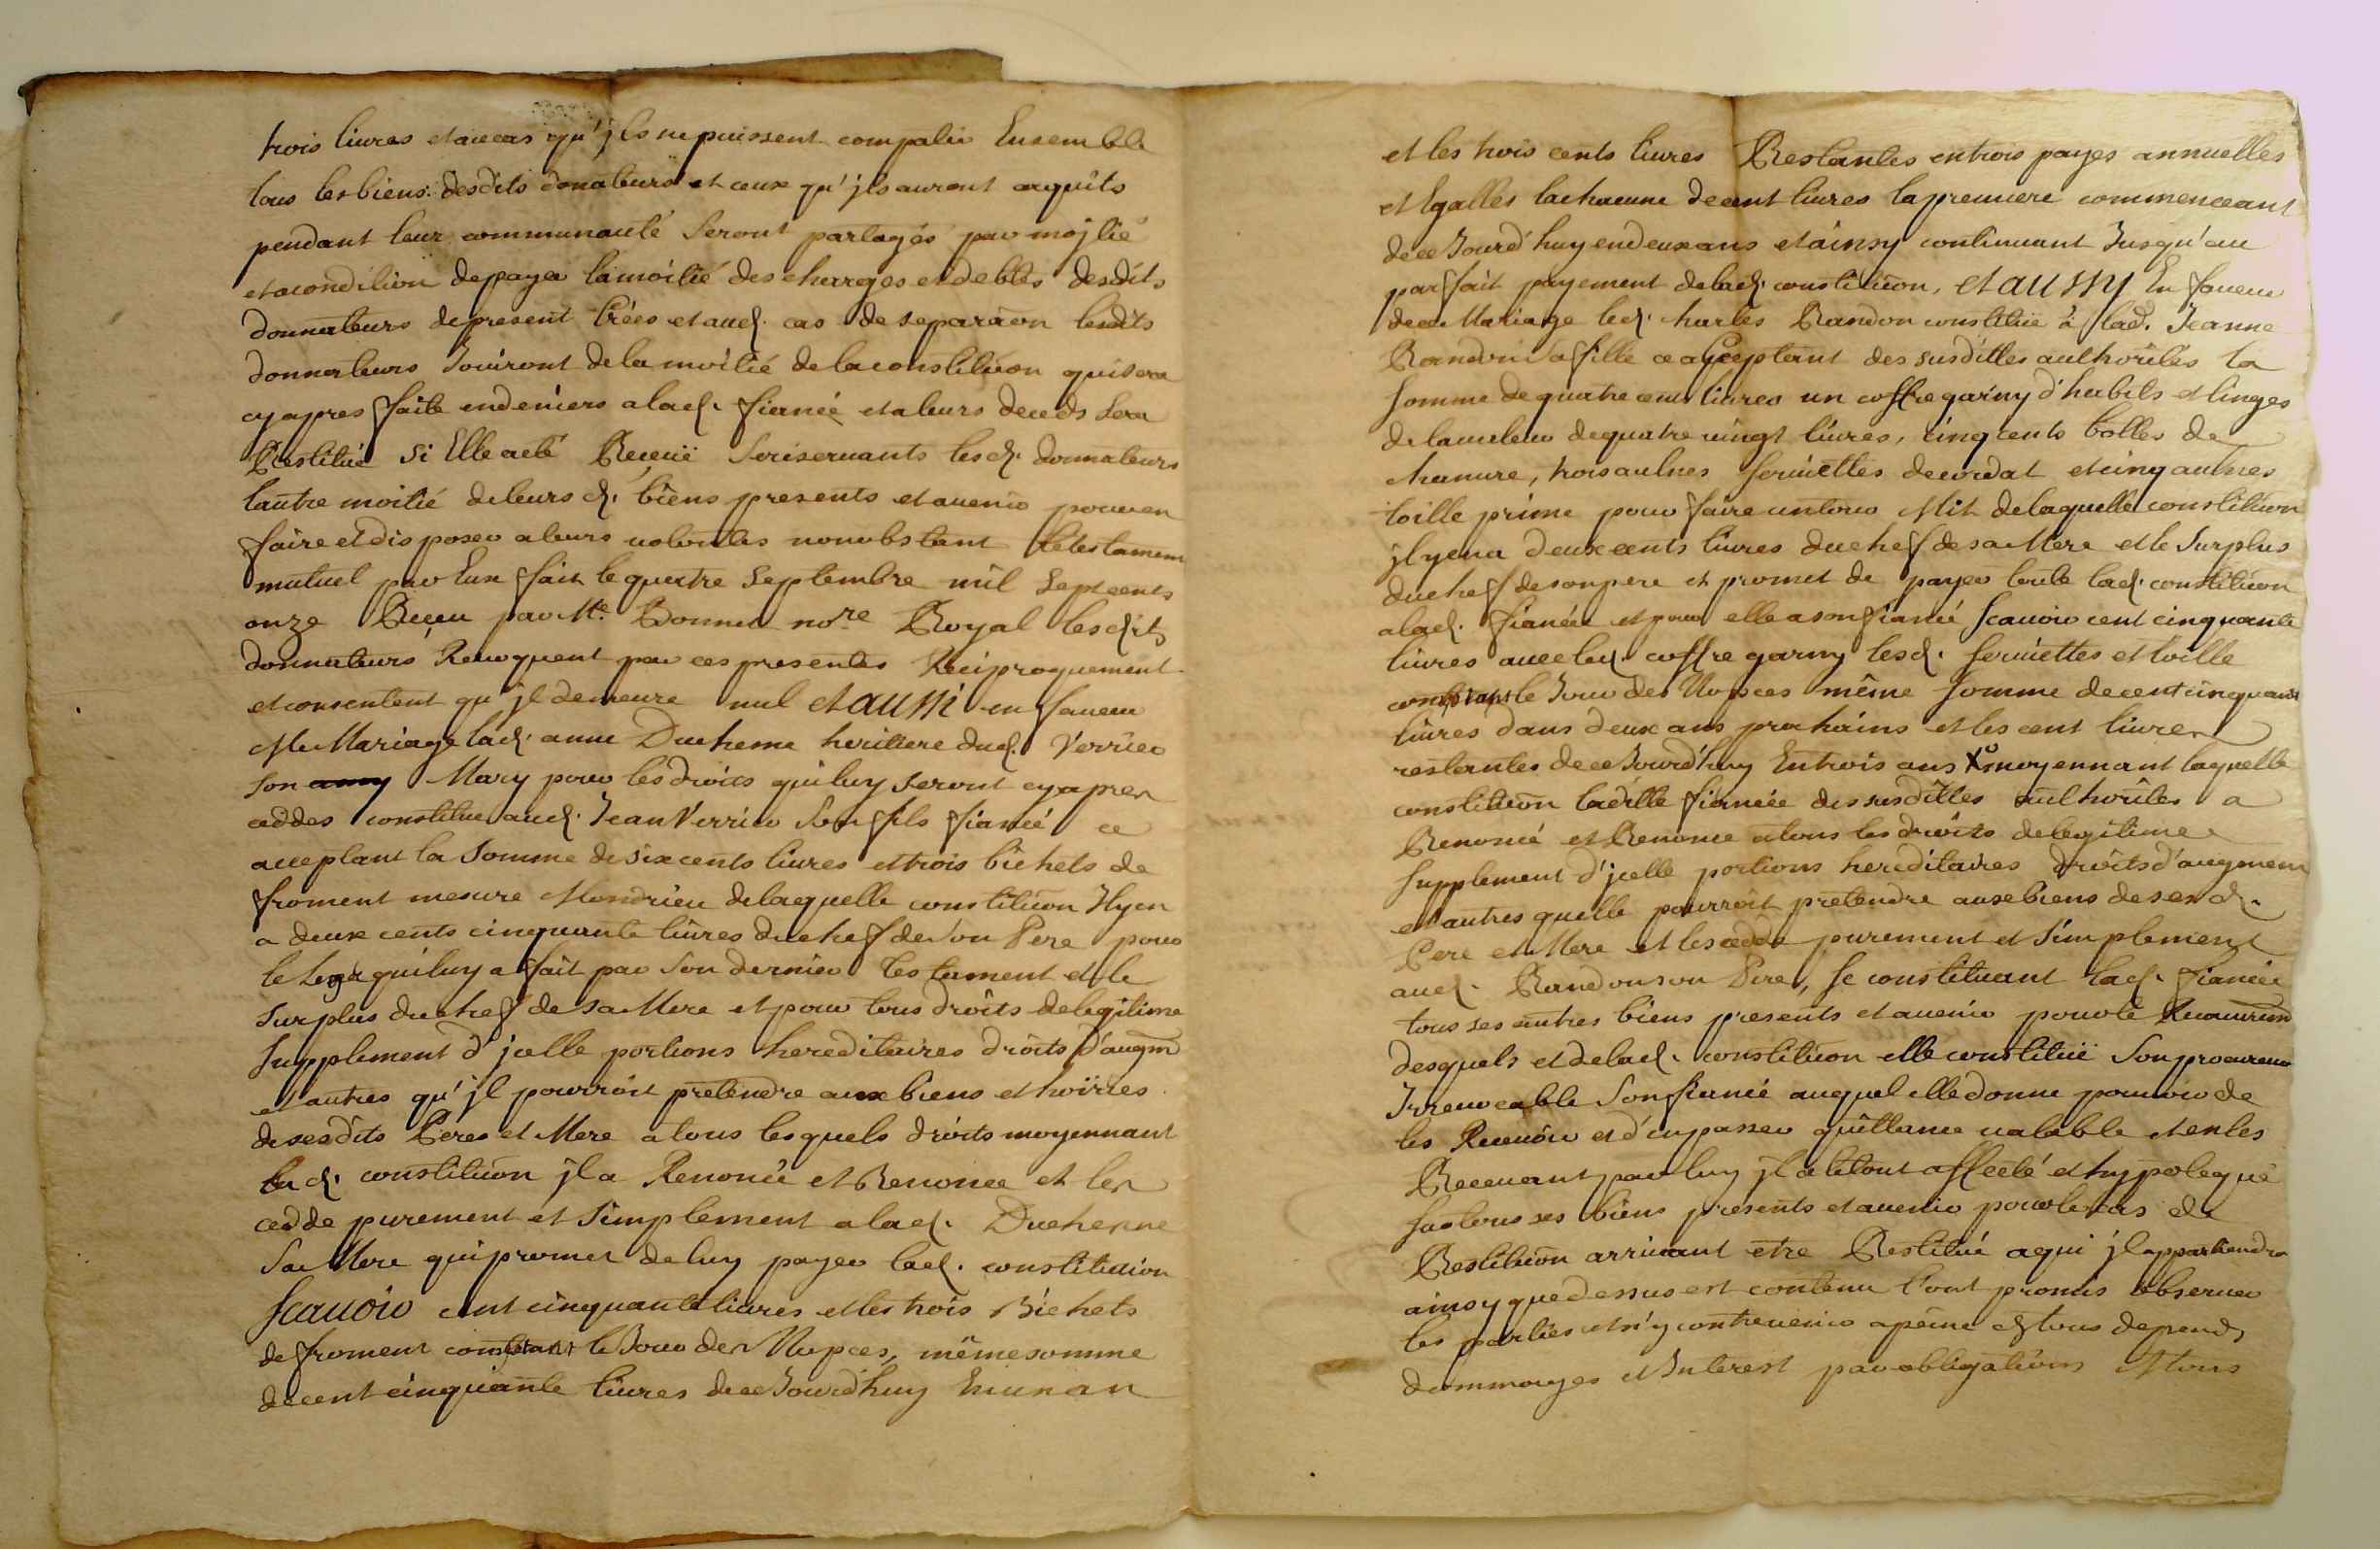 trois livres et au cas qu'jls ne puissent compatir Ensemble
tous les biens desdits donateurs et ceux qu'jls auront acquits
pendant leur communauté Seront partagés par mojtié
et a condition de payer la moitié des charges et debtes desdits
donnateurs de present Créés et aud. cas de separaon lesdits
donnateurs Jouiront de la moitié de la constituon qui sera
cy apres faite en deniers a lad. fiancée et a leurs deceds Sera
Restitué Si Elle a eté Receuë Se reservants lesd. donnateurs
l'autre moitié de leurs d. biens presents et avenir pour en
faire et disposer a leurs volontes nonobstant le testament
mutuel par Eux fait le quatre Septembre mil Sept cents
onze Reçeu par Me. Bonnet nore Royal lesdits
donnateurs Revoquent par ces presentes Reciproquement
et consentent qu'jl demeure nul et aussi en faveur
de Mariage lad. anne Duchenne heritiere dud. Verrier
son Mary pour les droits qui luy seront cy apres
ceddes constitue aud. Jean Verrier Son fils fiancé ce
acceptant la Somme de six cents livres et trois bichets de
froment mesure Mondrieu de laquelle constituon Jl y en
a deux cents cinquante livres du chef de Son Pere pour
le Legat qui luy a fait par Son dernier testament et le
Surplus du chef de sa Mere et pour tous droits de legitime
Supplement d'jcelle portions hereditaires droits d'augm
et autres qu'jl pourroit pretendre aux biens et hoiries
de sesdits Peres et Mere a tous lesquels droits moyennant
lad. constituon jl a Renoncé et Renonce et les
cedde purement et Simplement a lad. Duchenne
Sa Mere qui promet de luy payer lad. constitution
Scavoir cent cinquante livres et les trois Bichets
de froment comptant le Jour des Nupces, même somme
de cent cinquante livres de ce Jourd'huy En un an
et les trois cents livres Restantes en trois payes annuelles
et Egalles la chacune de cent livres la premiere commenceant
de ce Jourd'huy en deux ans et ainsy continuant Jusqu'au
parfait payement de lad. constituon, et aussy En faveur
de ce Mariage led. charles Randon constitue a lad. Jeanne
Randon Sa fille ce acceptant des susdittes authorités la
Somme de quatre cents livres un coffre garny d'habits et linges
de la valeur de quatre vingt livres, cinq cents bottes de
chanure, trois aulnes Serviettes de cordat et cinq aulnes
toille prime pour faire un tour de lit de laquelle constituon
jl y en a deux cents livres du chef de sa Mere et le Surplus
du chef de son pere et promet de payer toute lad. constituon
a lad. fiancée et pour elle a son fiancé Scavoir cent cinquante
livres avec led. coffre garny lesd. Serviettes et toille
comptant le Jour des Nupces même Somme de cent cinquante
livres dans deux ans prochains et les cent livres
restantes de ce Jourd'huy En trois ans moyennant laquelle
constituon laditte fiancée des susdittes authorites a
Renoncé et Renonce a tous les droits de legitime
Supplement d'jcelle portions hereditaires droits d'augment
et autres quelle pourroit pretendre aux biens de sesd.
Pere et Mere et les cedde purement et Simplement
aud. Randon son Pere, Se constituant lad. fiancée
tous ses autres biens presents et avenir pour le Recouvrem
desquels et de lad. constituon elle constituë Son procureur
Jrrevocable Son fiancé auquel elle donne pouvoir de
les Recevoir et d'en passer quittance valable et en les
Recevant par luy jl a le tout affecté et hypotequé
Sur tous ses biens presents et avenir pour le cas de
Restituon arrivant etre Restitué a qui jl appartiendra
ainsy que dessus est contenu l'ont promis observer
les parties et n'y contrevenir a peine de tous depends
dommages et Interest par obligations de tous